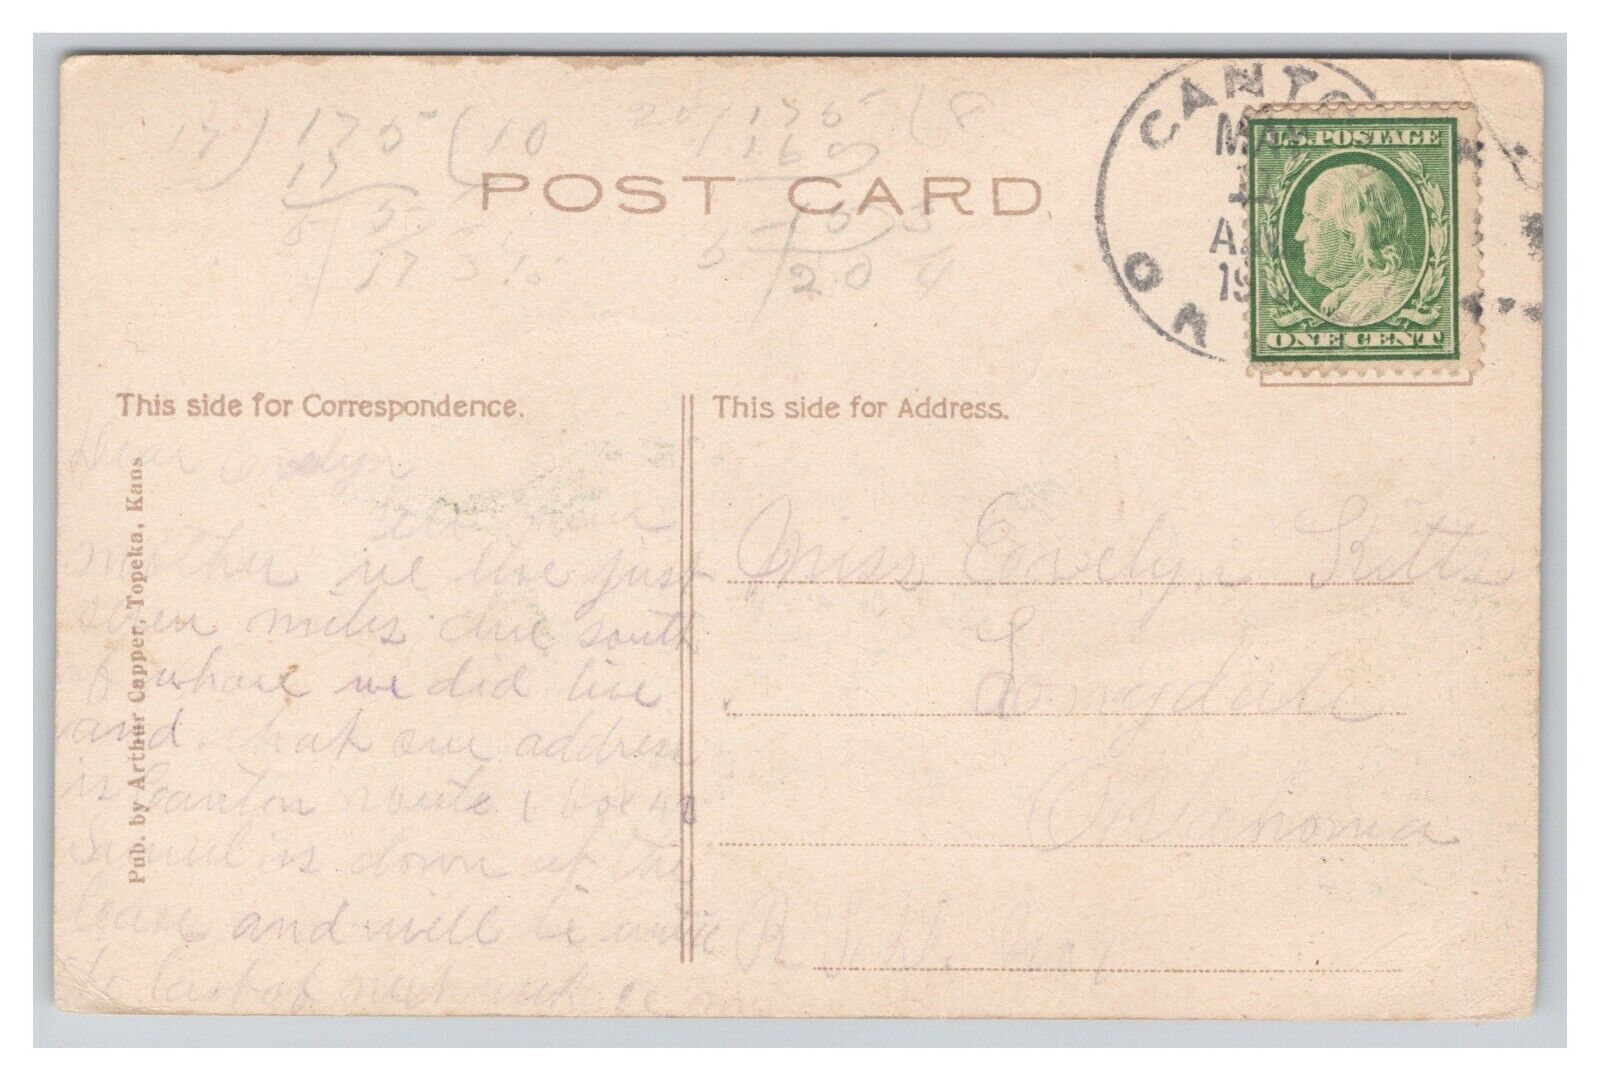 17)175(10
17
5
175
160
20
POST CARD
CANTO
MAR
11
AM
19
U.S. POSTAGE
ONE CENT
This side for Correspondence.
This side for Address.
Pub. by Arthur Capper, Topeka, Kans
Dear Evelyn
tell your
mother we live just
seven miles due south
of whare we did live
and that our address
is Canton route 1 box 41
is down at the
lease and will be until
the last of next week
Miss Evelyn Kitts
Longdale
Oklahoma
R